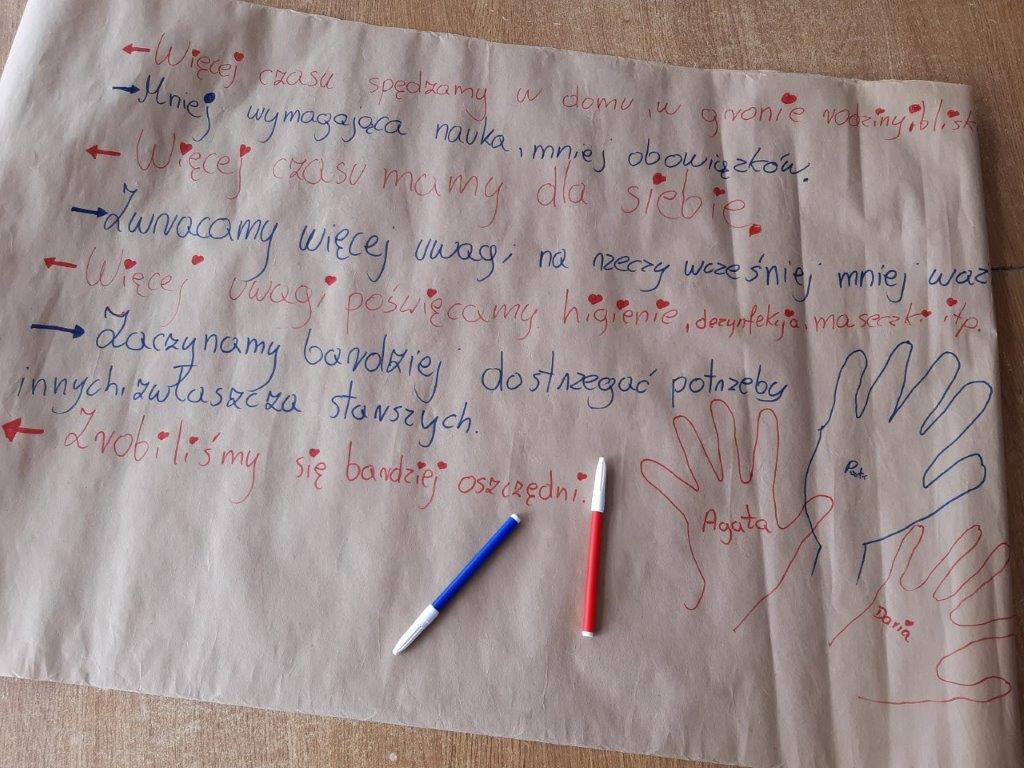 Więcej czasu spędzamy w domu, w gronie rodziny i blisk
Mniej wymagająca nauka, mniej obowiązków.
Więcej czasu mamy dla siebie.
Zwracamy więcej uwagi na rzeczy wcześniej mniej waż
Więcej uwagi poświęcamy higienie, dezynfekcja, maseczki itp.
Zaczynamy bardziej dostrzegać potrzeby
innych, zwłaszcza starszych.
Zrobiliśmy się bardziej oszczędni.
Agata
Daria